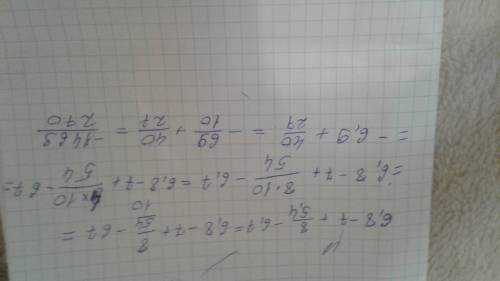 6,8 - 7 + 8/5,4 - 6,7 = 6,8 - 7 + 8/(54/10) - 67 =
= 6,8 - 7 + 8·10/54 - 6,7 = 6,8 - 7 + 4×10/54 - 67 =
= - 6,9 + 40/27 = - 69/10 + 40/27 = -1463/270